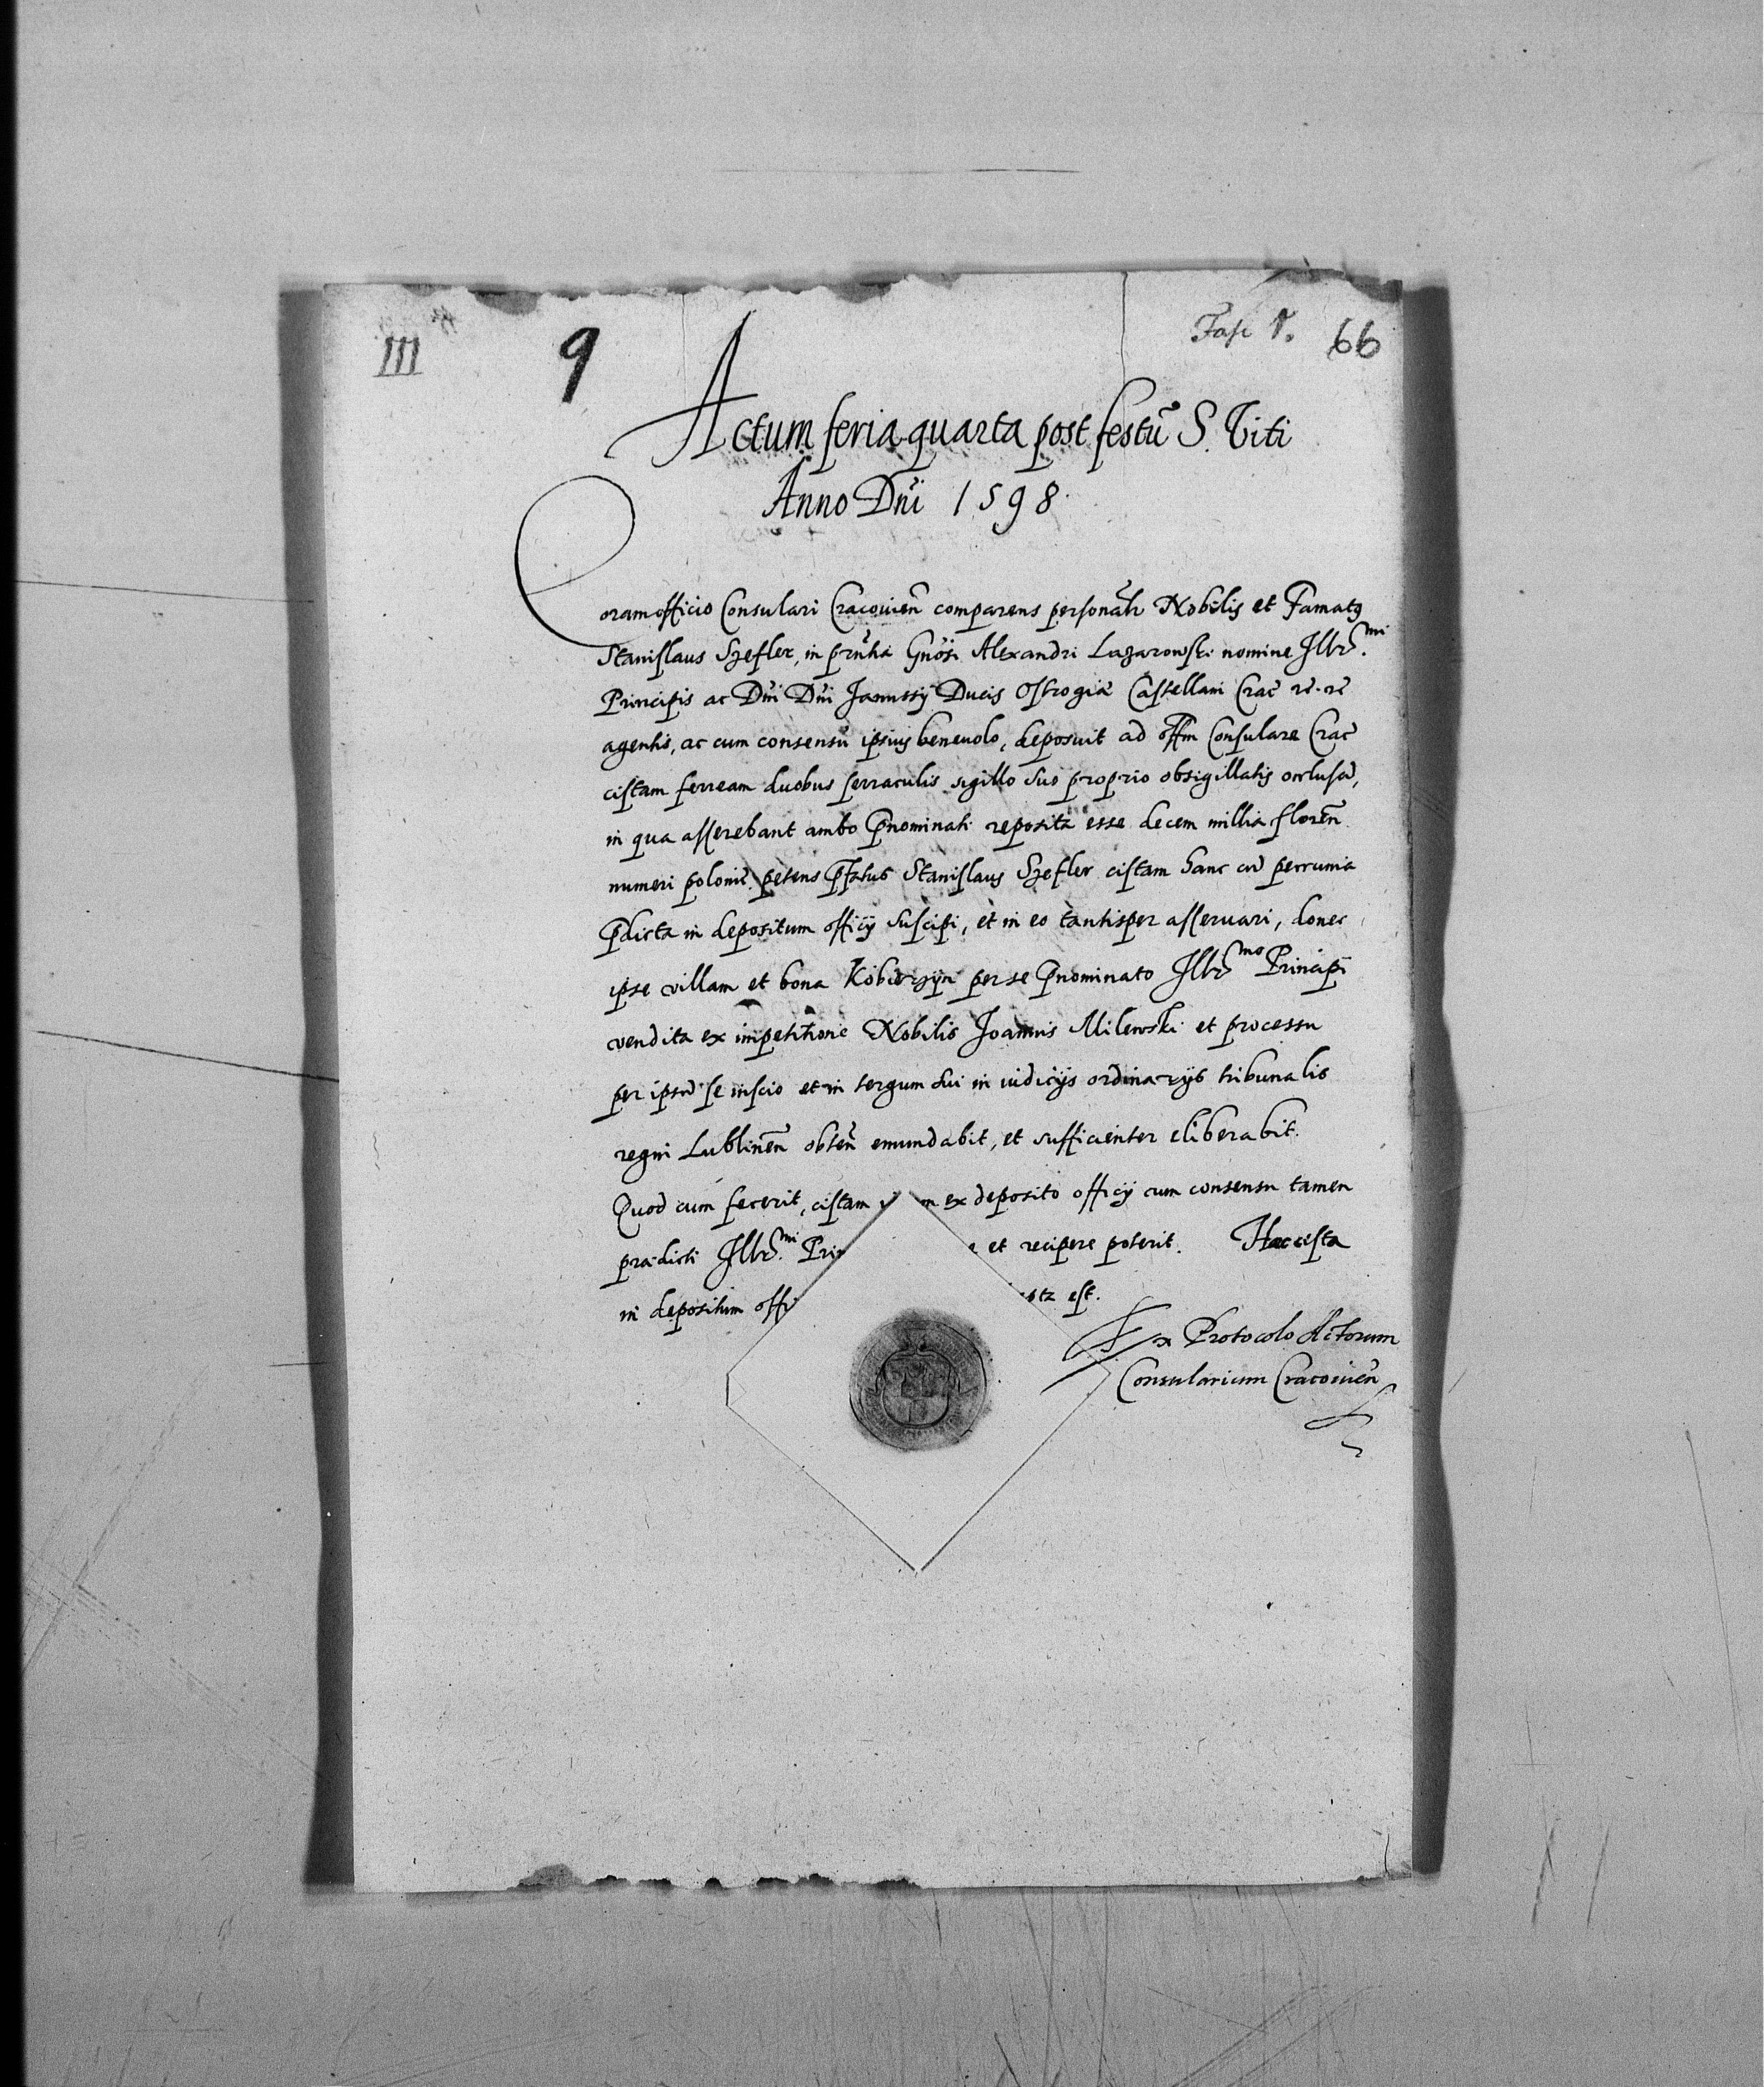 III 9 Fasc 1. 66
Actum feria quarta post festũ S. Viti
Anno Dñi 1598.
Coram officio Consulari Cracovieñ comparens personalr Nobilis et Famatq
Stanislaus Szefler, in prñtia Gñosi Alexandri Lazarowski nomine Illrmi.
Principis ac Dñi Dñi Janussÿ Ducis Ostrogiæ Castellani Crac̃ rẽ. rẽ
agentis, ac cum consensũ ipsius beneuolo, deposuit ad offm Consulare Crac̃
cistam ferream duobus serraculis sigillo suo proprio obsigillatis occlusã,
in qua asserebant ambo p̃nominati reposita esse decem millia floreñ
numeri poloniẽ. petens p̃fatus Stanislaus Szefler cistam hanc cũ peccunia
p̃dicta in depositum officÿ suscipi, et in eo tantisper asseruari, donec
ipse villam et bona Kobierzyn per se p̃nominato Illrmo Principi
vendita ex impetitione Nobilis Joannis Milewski et processu
per ipsũ se inscio et in tergum sui in iudicÿs ordinarÿs tribunalis
regni Lublineñ obteñ emundabit, et sufficienter eliberabit.
Quod cum fecerit, cistam m ex deposito officÿ cum consensu tamen
prædicti Illrmi. Pri e et recipere poterit. Hæc cista
in depositum offi ta est.
Ex Protocolo Actorum
Consularium Cracovieñ